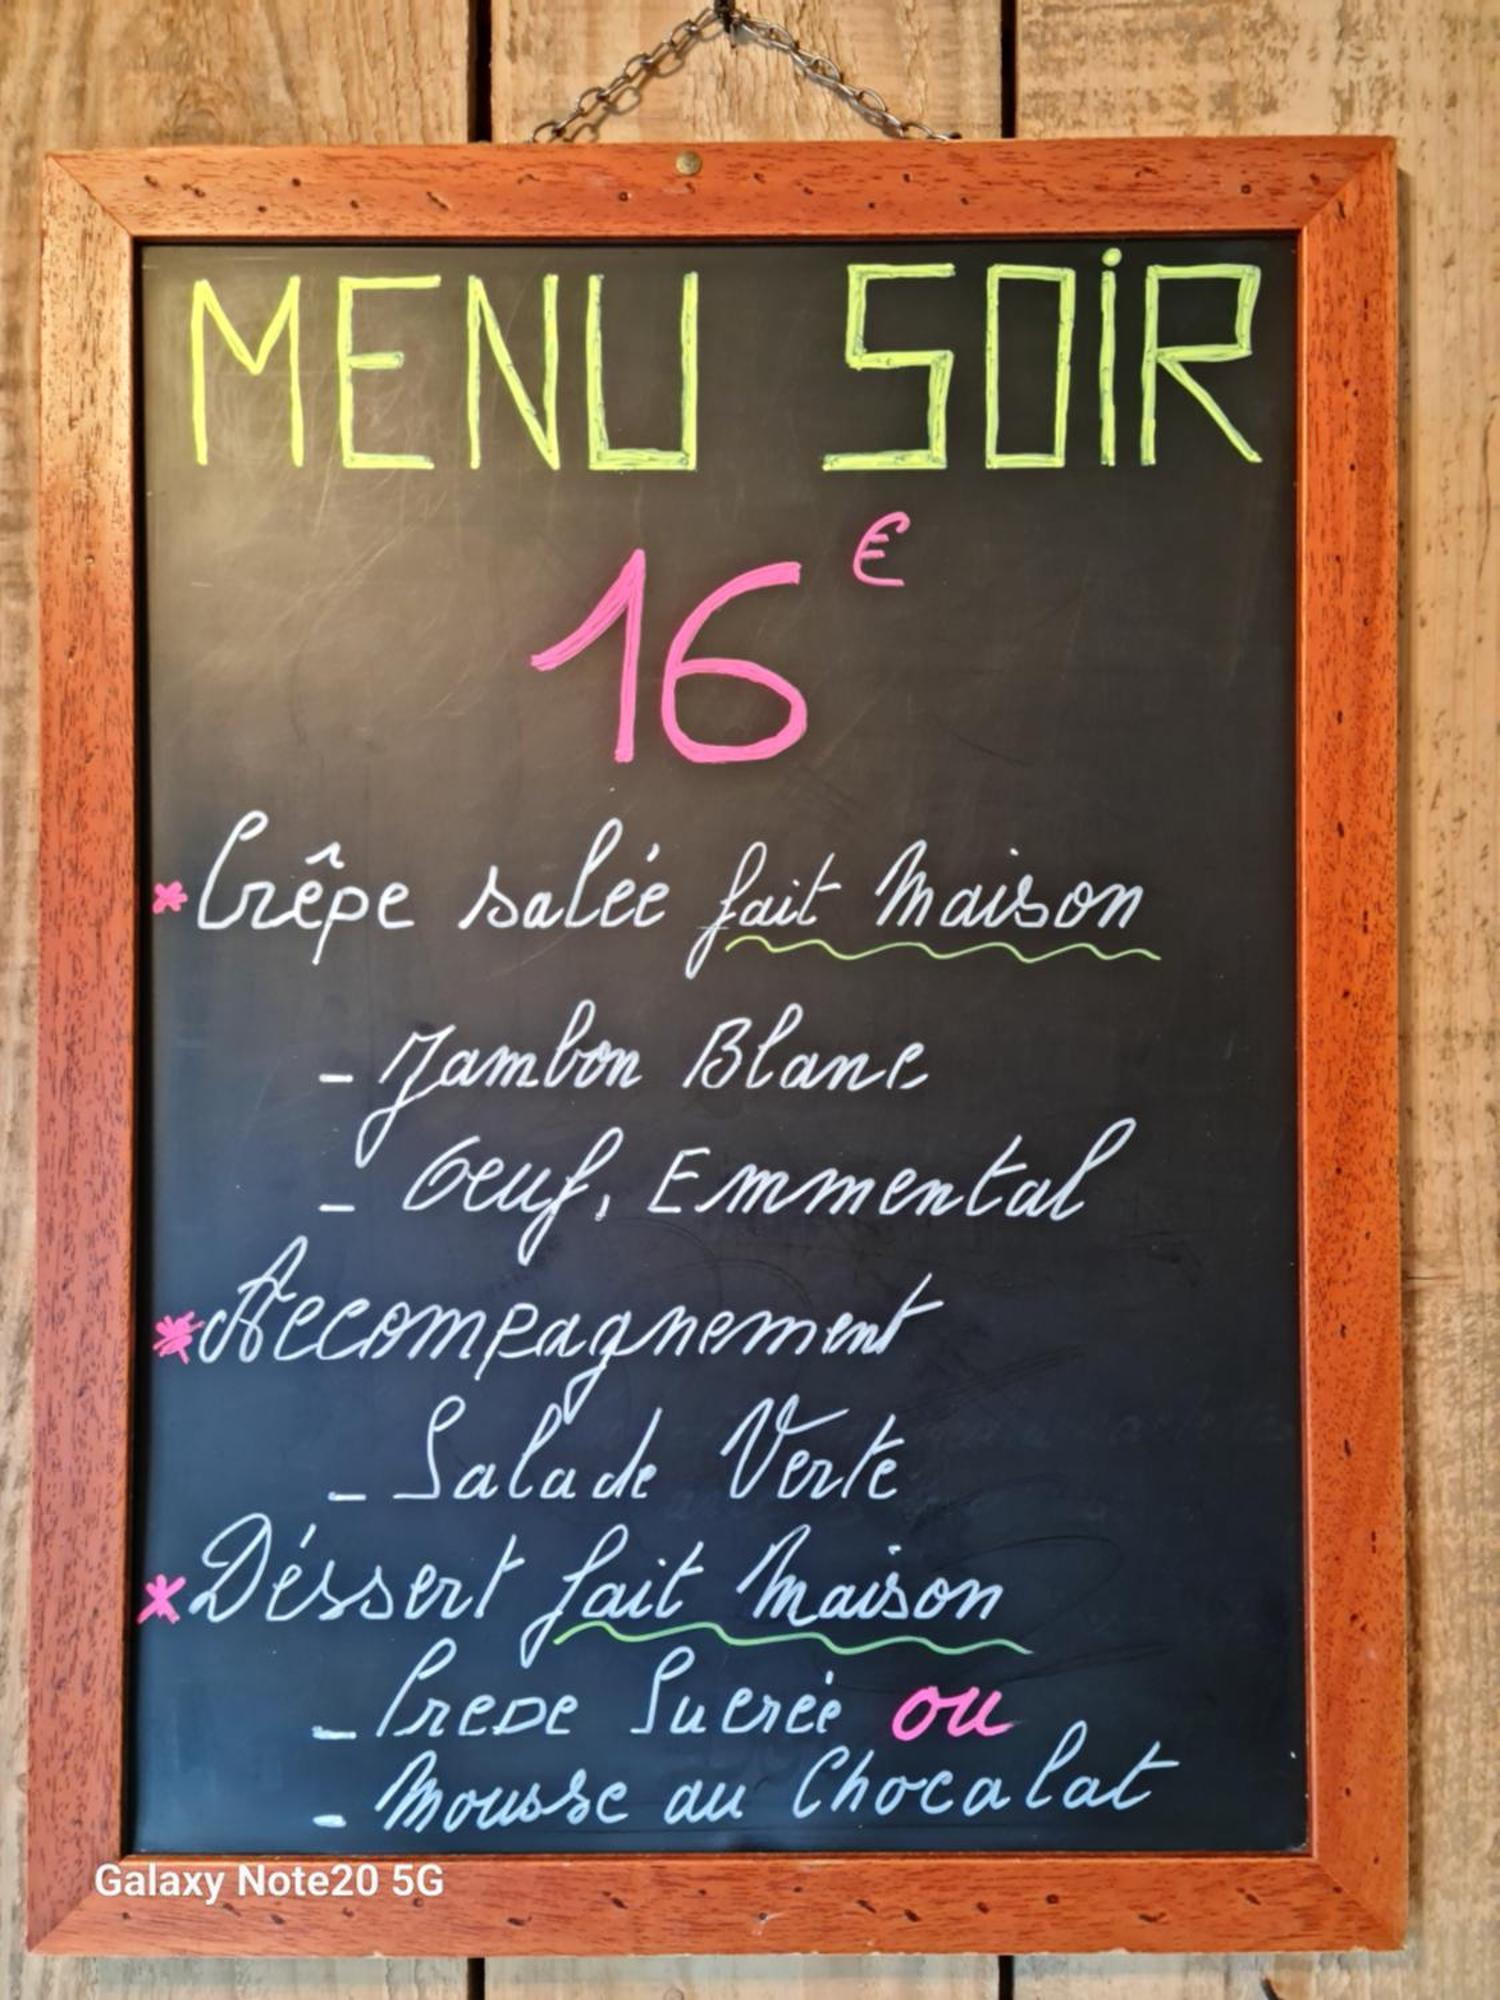 MENU SOiR
16€
* Crêpe salée fait Maison
- Jambon Blanc
- Oeuf, Emmental
* Accompagnement
- Salade Verte
* Déssert fait Maison
- Crepe Sucrée ou
- Mousse au Chocalat
Galaxy Note20 5G